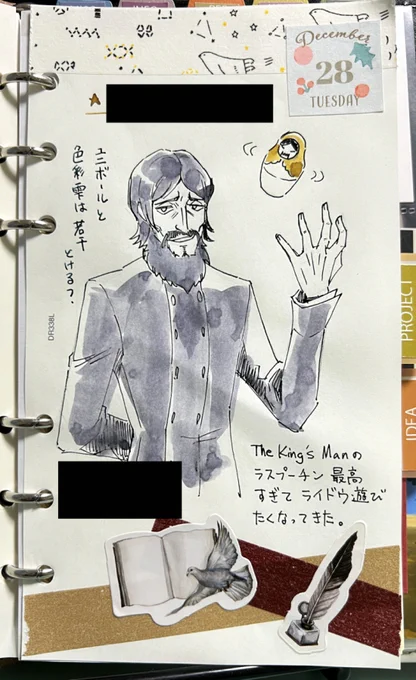 December
28
TUESDAY
ユニボールと
色彩雫は若干
とける?
DR338L
PROJECT
IDEA
The King's Manの
ラスプーチン 最高
すぎて ライドウ遊び
たくなってきた。